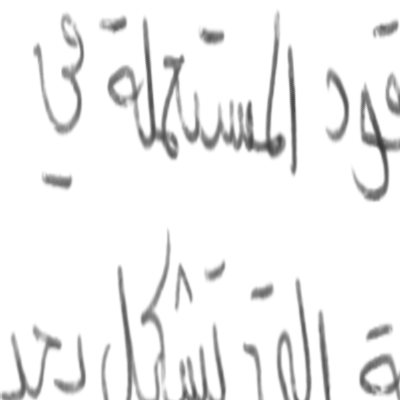 قود المستعملة في
ة التي تشكل بحد